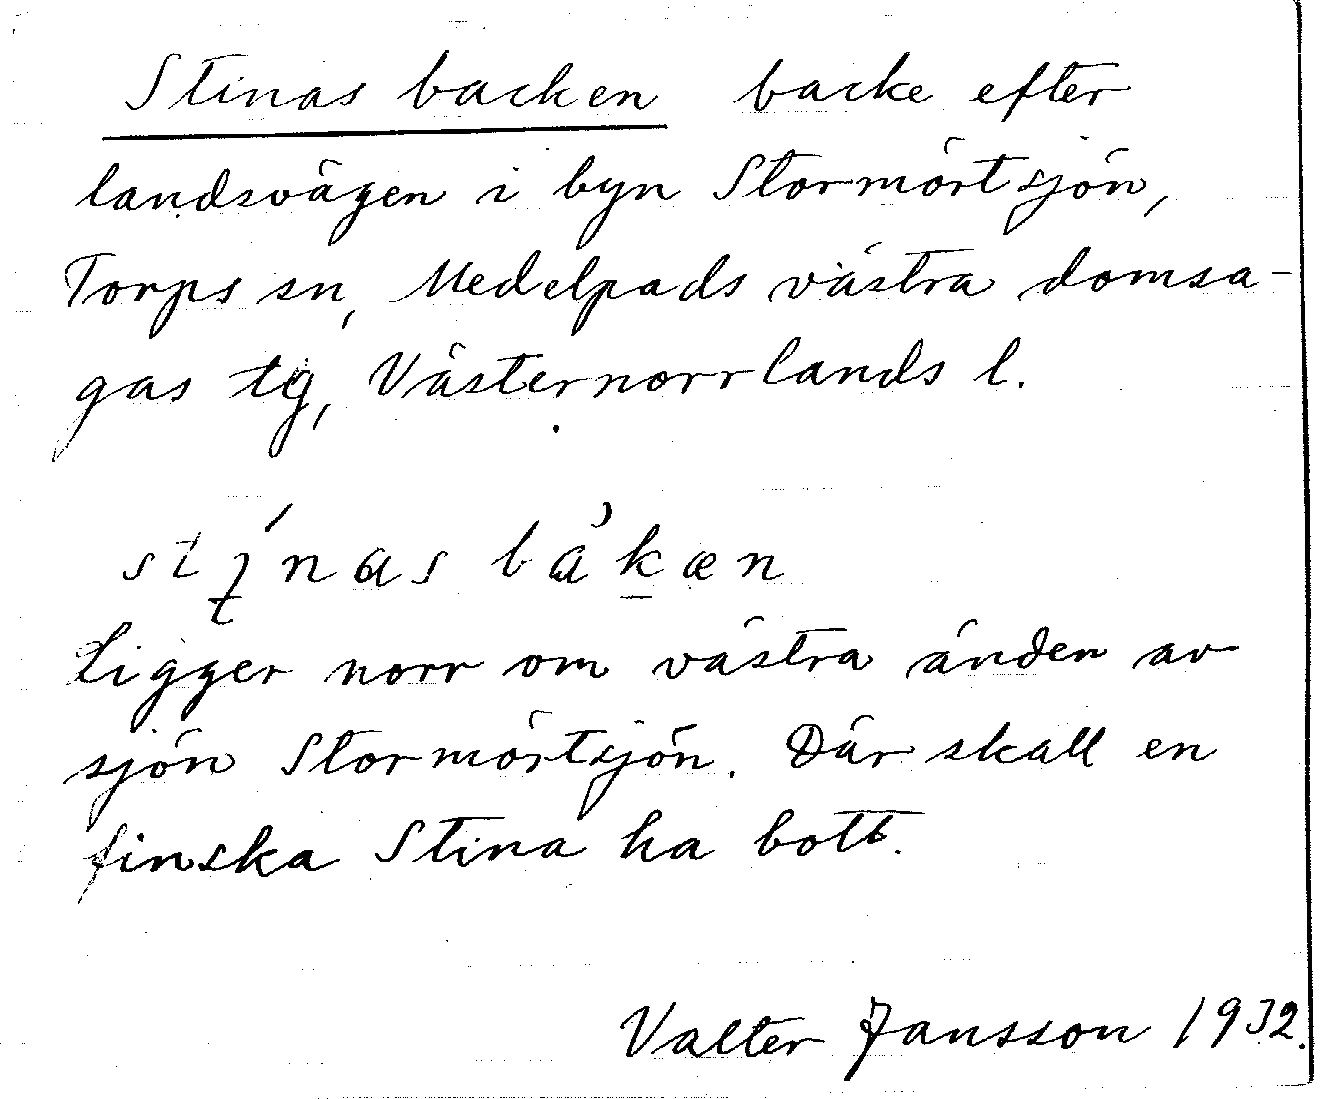 Stinas backen backe efter
landsvägen i byn Stormörtsjön,
Torps sn, Medelpads västra domsa-
gas tg, Västernorrlands l.
ligger norr om västra änden av
sjön Stormörtsjön. Där skall en
finska Stina ha bott.
Valter Jansson 1932.